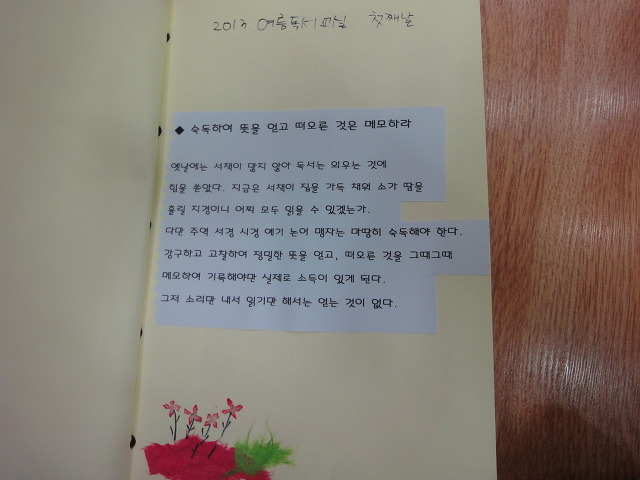 2013 여름독서교실 첫째날
◆ 숙독하여 뜻을 얻고 떠오른 것은 메모하라
옛날에는 서책이 많지 않아 독서는 외우는 것에
힘을 쏟았다. 지금은 서책이 집을 가득 채워 소가 땀을
흘릴 지경이니 어찌 모두 읽을 수 있겠는가.
다만 주역 서경 시경 예기 논어 맹자는 마땅히 숙독해야 한다.
강구하고 고찰하여 정밀한 뜻을 얻고, 떠오른 것을 그때그때
메모하여 기록해야만 실제로 소득이 있게 된다.
그저 소리만 내서 읽기만 해서는 얻는 것이 없다.